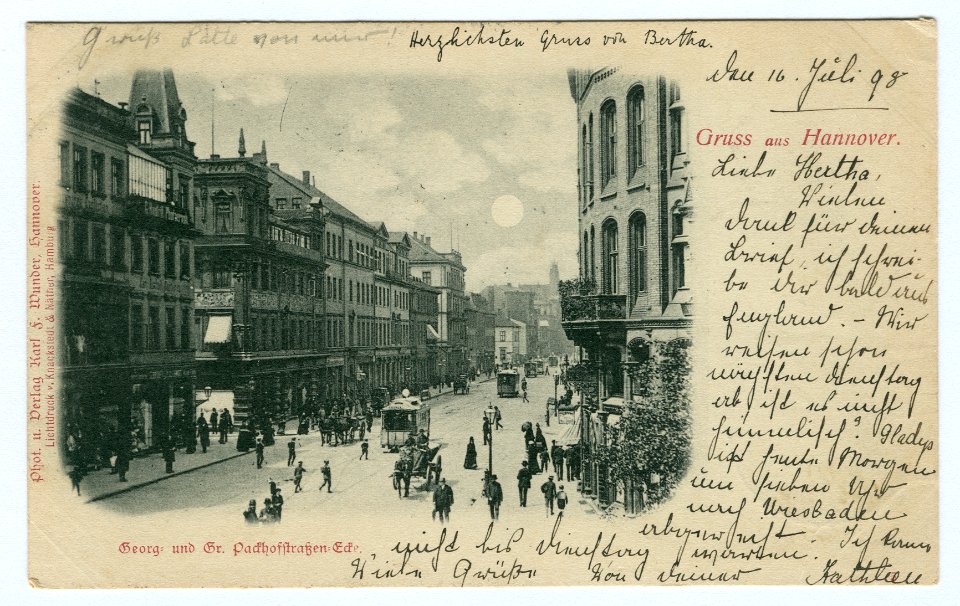 Gruß Lotte von mir!
Herzlichsten Gruss von Bertha.
den 16. Juli 98
Gruss aus Hannover.
Liebe Hertha,
Vielen
dank für deinen
Brief, ich schrei-
be dir bald aus
England. - Wir
reisen schon
nächsten dienstag
ist es nicht
himmlisch? Gladys
ist heute Morgen
um sieben Uhr
nach Wiesbaden
abgereist. Ich kann
nicht bis dienstag warten.
Viele Grüße Von deiner Kathleen
Georg- und Gr. Packhofstraßen-Ecke.
Phot. u. Verlag Karl F. Wunder, Hannover.
Lichtdruck v. Knackstedt & Näther, Hamburg